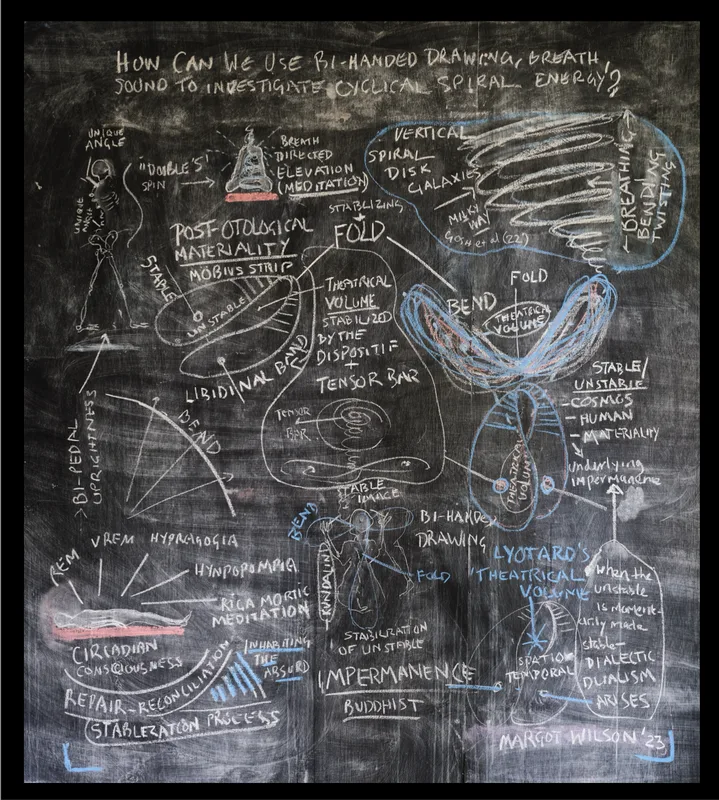 HOW CAN WE USE BI-HANDED DRAWING, BREATH,
SOUND TO INVESTIGATE CYCLICAL SPIRAL ENERGY?
UNIQUE
ANGLE
UNIQUE
"DOUBLE'S"
SPIN
BREATH
DIRECTED
ELEVATION
(MEDITATION)
VERTICAL
SPIRAL
DISK
GALAXIES
MILKY
WAY
BREATHING
BENDING
TWISTING
STABILIZING
FOLD
POST-OTOLOGICAL
MATERIALITY
MÖBIUS STRIP
STABLE
UNSTABLE
LIBIDINAL BAND
THEATRICAL
VOLUME
STABILIZED
BY THE
DISPOSITIF
+
TENSOR BAR
TENSOR
BAR
STABLE
IMAGE
FOLD
BEND
THEATRICAL
VOLUME
THEATRICAL
VOLUME
STABLE/
UNSTABLE
- COSMOS
- HUMAN
- MATERIALITY
underlying
impermanence
BI-PEDAL
UPRIGHTNESS
BEND
REM
VREM
HYPNAGOGIA
HYNPOPOMPIA
RIGA MORTIC
MEDITATION
CIRCADIAN
CONSCIOUSNESS
REPAIR-RECONCILIATION
STABLEZATION PROCESS
INHABITING
THE
ABSURD
BEND
BI-HANDED
DRAWING
FOLD
KUNDALINI
STABILIZATION
OF UNSTABLE
IMPERMANENCE
BUDDHIST
LYOTARD'S
THEATRICAL
VOLUME
SPATIO
TEMPORAL
When the
unstable
is moment-
arily made
stable-
DIALECTIC
DUALISM
ARISES
MARGOT WILSON '23